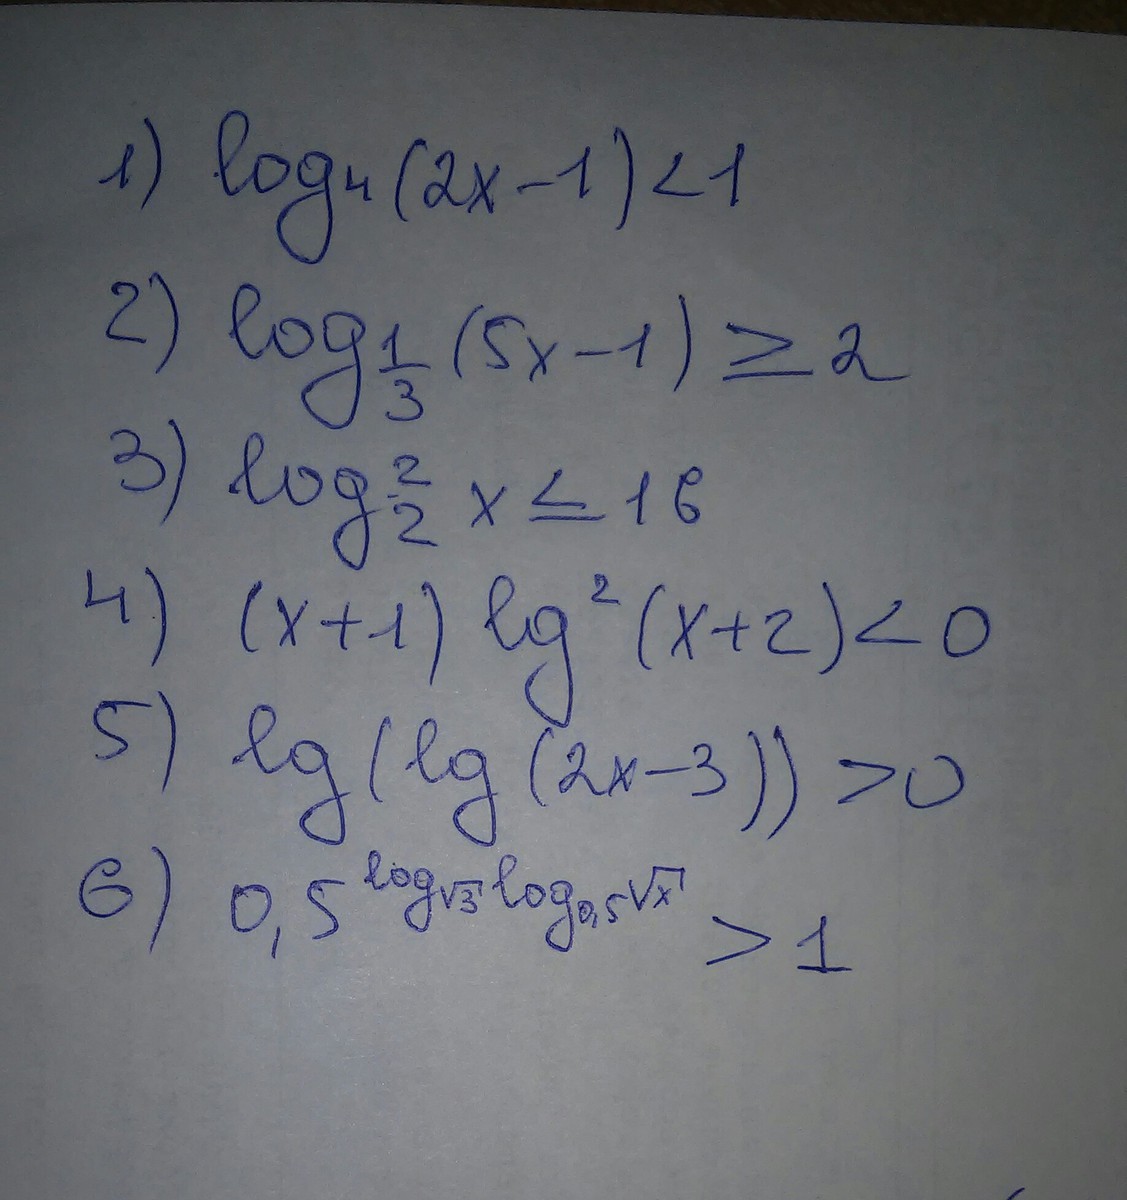 1) log₄(2x-1)<1
2) log_{1/3}(5x-1)≥2
3) log₂² x≤16
4) (x+1) lg²(x+2)<0
5) lg(lg(2x-3))>0
6) 0,5^{log_{√3} log_{0,5} √x} >1